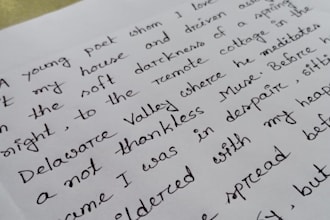 A young poet whom I love
my house and driven
the soft darkness of a spring
night, to the remote cottage in the
Delaware Valley where he meditates
a not thankless Muse. Before he
came I was in despair, sitting
with my heap
spread before
but